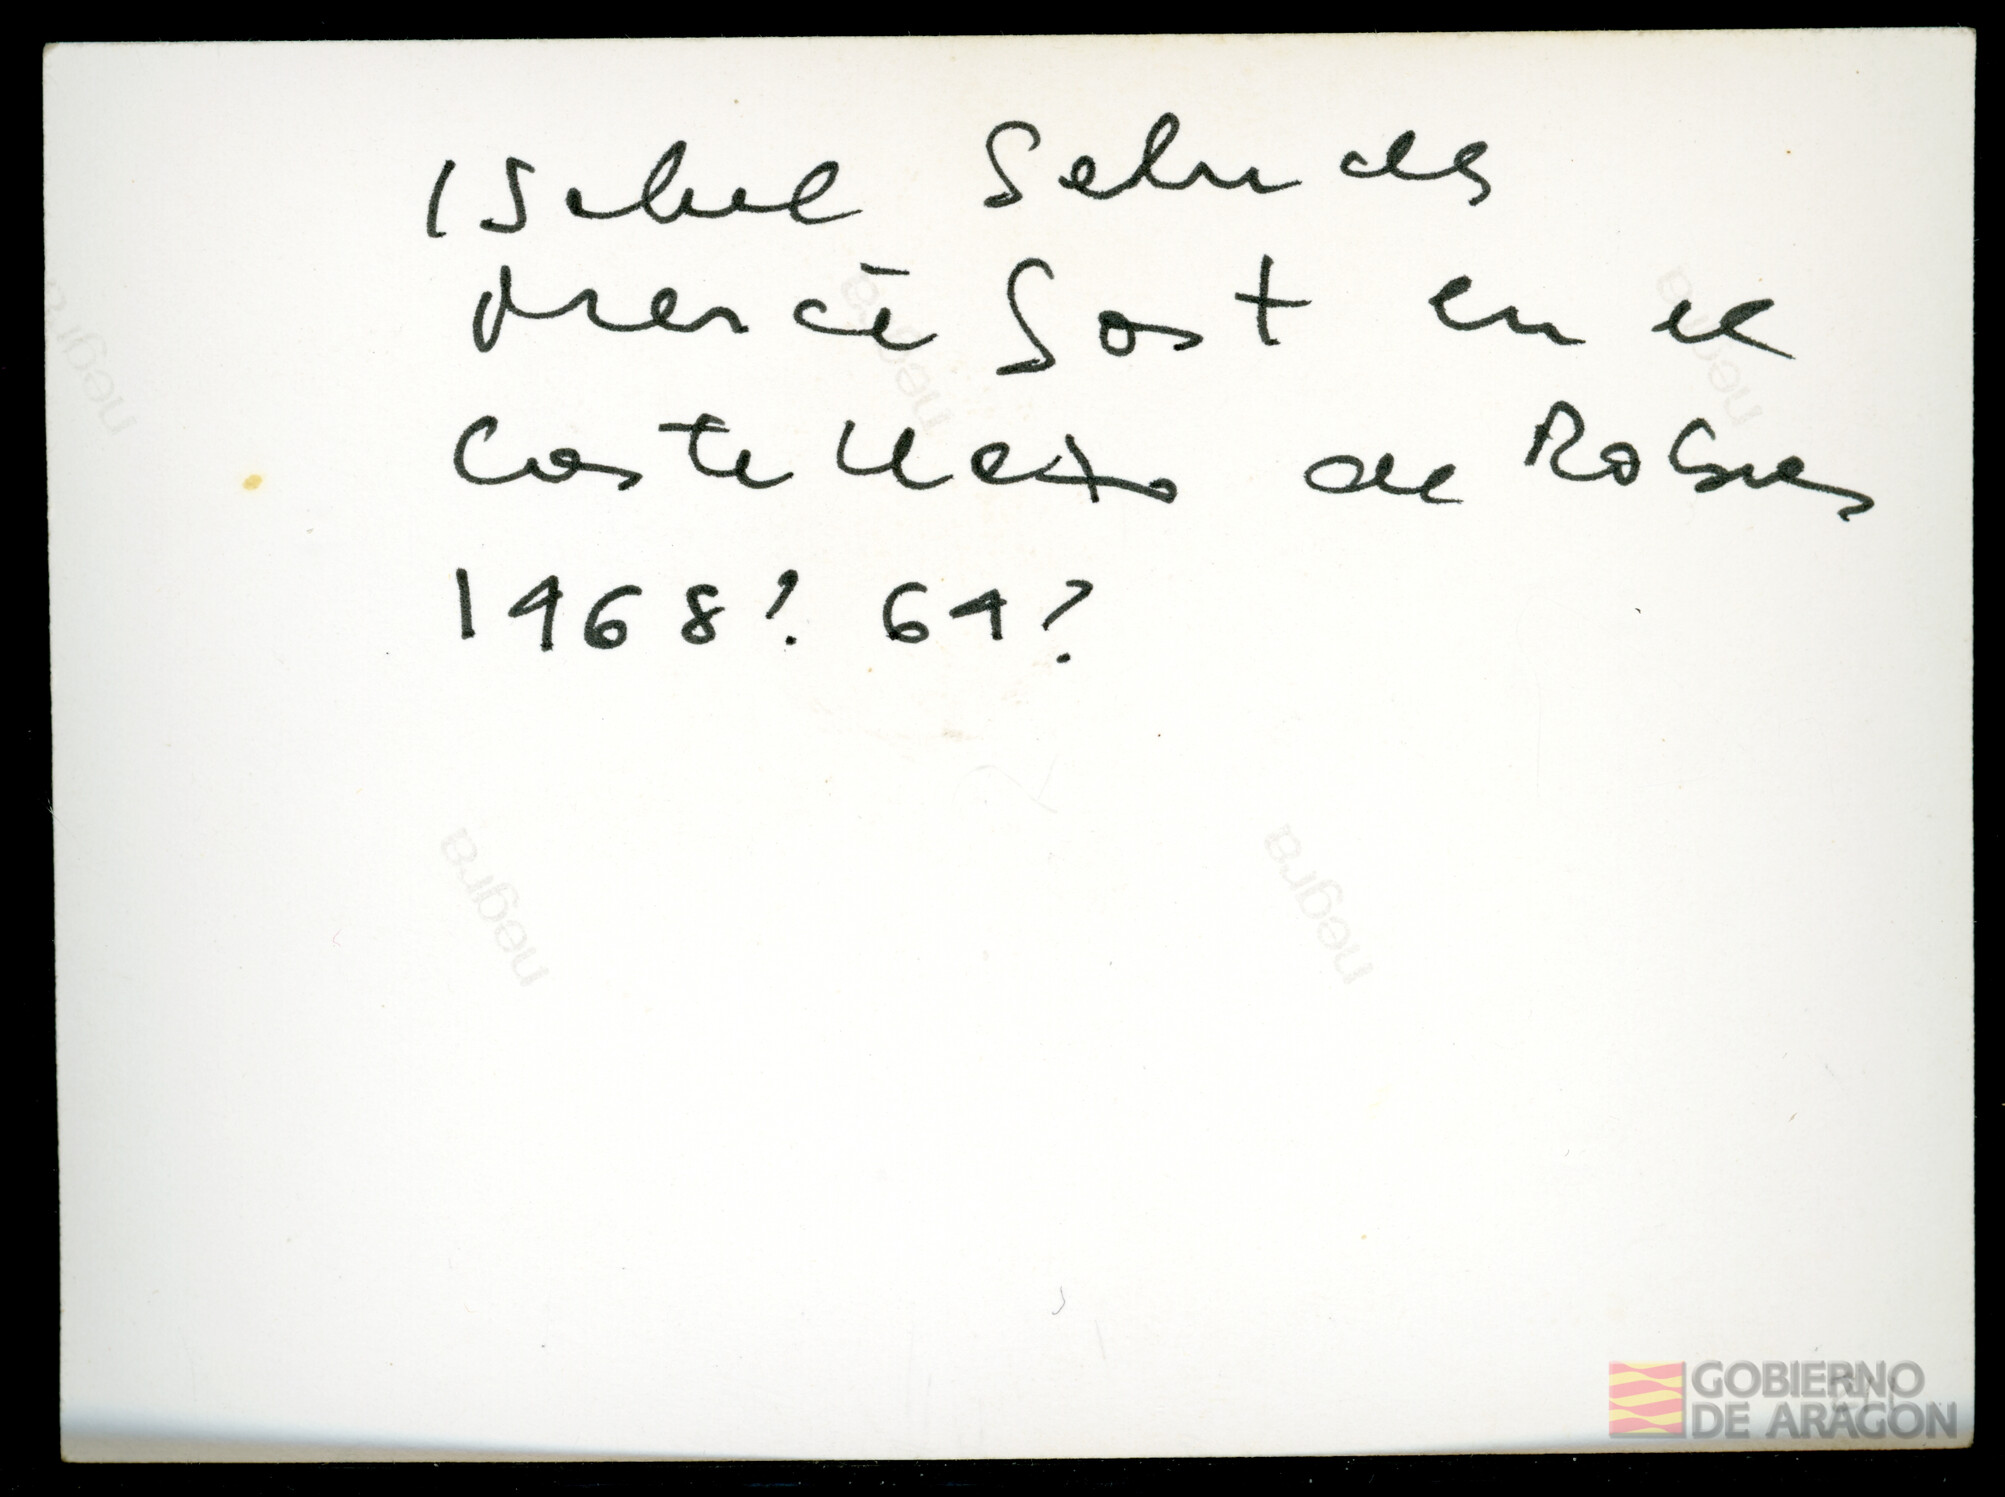 Isabel
Mercè Gost en el
Castellazo de Robres
1968? 69?
negra
negra
negra
negra
negra
GOBIERNO
DE ARAGON